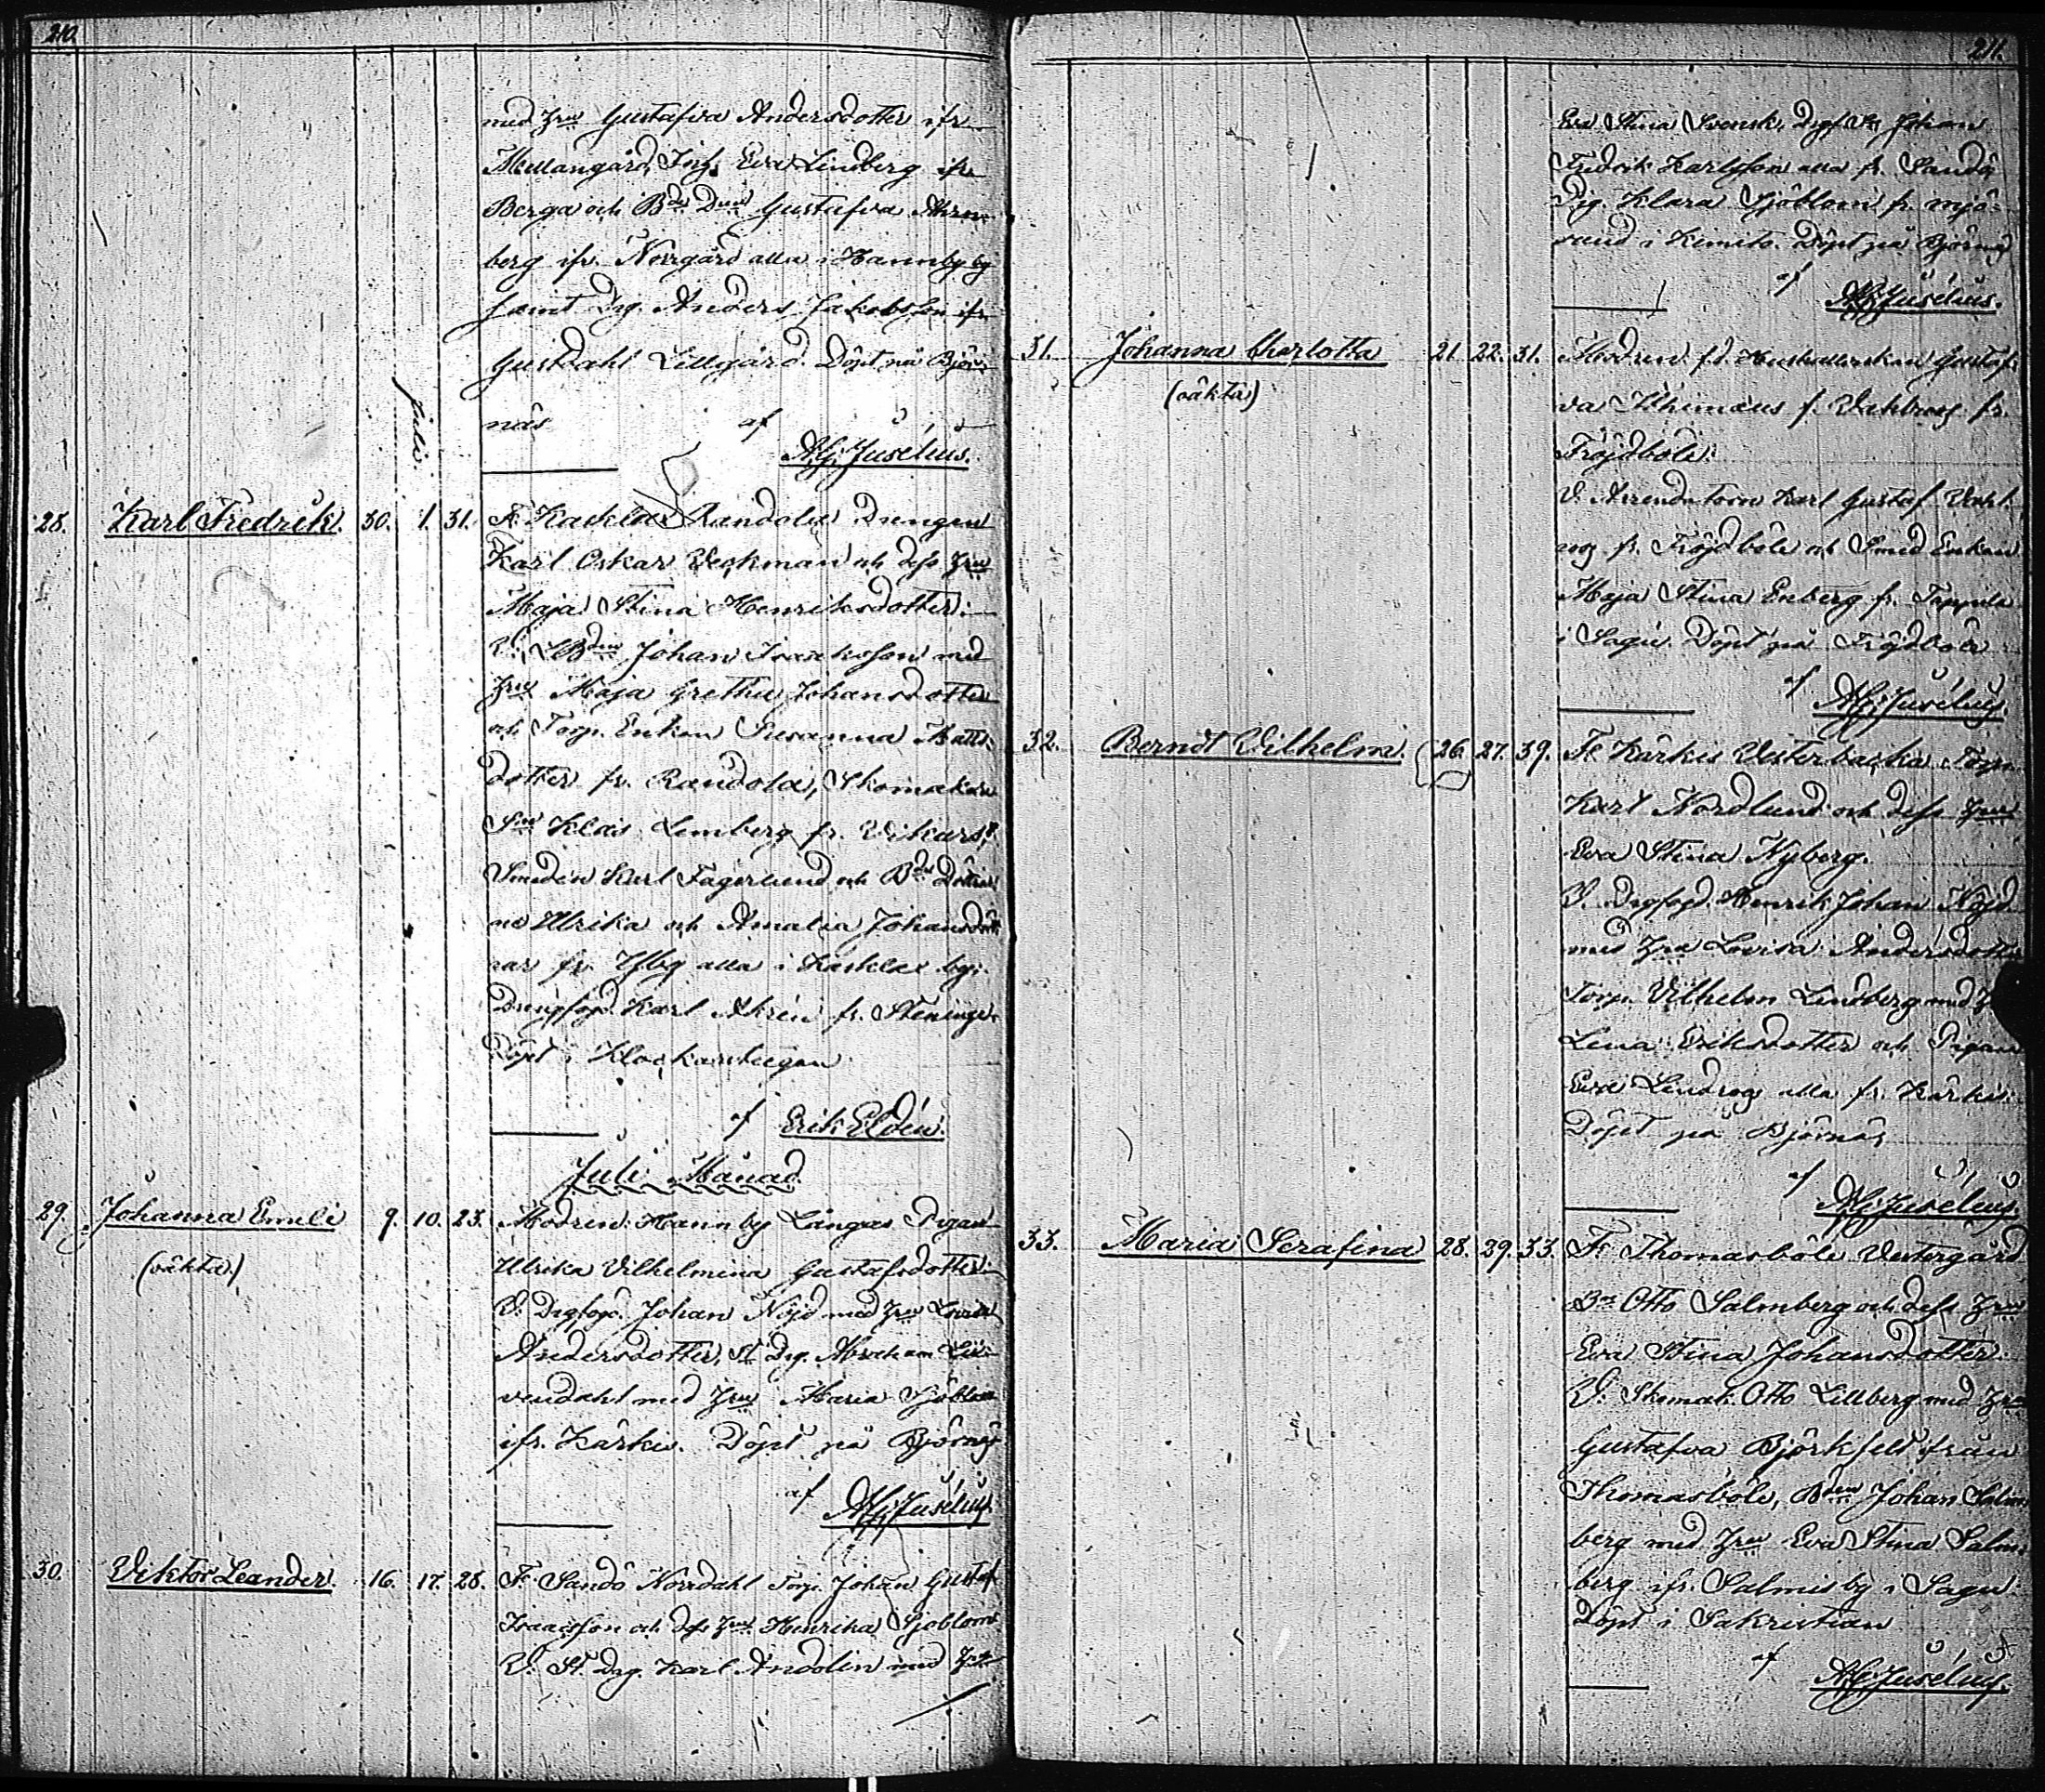 210.
med hru Gustafva Andersdotter ifr
Mellangård, Inhs. Eva Lindberg ifr
Berga och Bde Dren Gustafva Ahren
berg ifr. Norrgård alla i Hannby by
samt Drg. Anders Jakobsson ifr
Gustdahl Lillgård. Döpt på Björ
näs af
A.G. Jusélius.
Julii.
28. Karl Fredrik. 30. 1. 31. Fr. Kasklax Randola Drengen
Karl Oskar Veckman och dess hru
Maja Stina Henriksdotter.
V. Bden Johan Isaksson med
hru Maja Gretha Johansdotter
och Torp. Enkan Susanna Matts
dotter fr. Randola, Skomakare
Sn Klas Lemberg fr. Vikars,
Smeden Karl Fagerlund och Bde Döttrar
ne Ulrika och Amalia Johansdött
rar fr. alla i Kasklax by;
Drengfogd. Karl Ahrén fr. Steninge.
Döpt i Klockarstugan
af Erik Eldén.
Juli Månad.
29. Johanna Emeli 9. 10. 23. Modren: Hannby Långas Pigan
(oäkta) Ulrika Vilhelmina Gustafsdotter
V. Drgfogd. Johan Nöjd med hru Lovisa
Andersdotter, St. Drg. Abraham Lö
vendahl med hru Maria Sjöblom
ifr. Kärkis. Döpt på Björnäs
af A.G. Jusélius.
30. Viktor Leander. 16. 17. 28. Fr. Sandö Norrdahl Torp. Johan Gustaf
Isaacsson och dess hru Henrika Sjöblom
V. St. drg. Karl Andolin med hru
211.
Eva Stina Svensk, Drgs. Sn Johan
Fredrik Karlsson alla fr. Sandö
Pig. Klara Sjöblom fr. mjö-
sund i Kimito. Döpt på Björnäs
af A.G. Jusélius.
31. Johanna Charlotta 21. 22. 31. Modren f.d. Hushållerskan Gustaf-
(oäkta) va f. Vahlroos fr.
Fröjdböle.
V. Arrendatorn Karl Gustaf Vahl
roos fr. Fröjdböle och Smed Enkan
Maja Stina Enberg fr. Toppila
i Sagu. Döpt på Fröjdböle
af A.G. Jusélius.
32. Berndt Vilhelm. 26. 27. 39. Fr. Kärkis Vesterbacka Torp.
Karl Nordlund och dess hru
Eva Stina Nyberg.
V. Drgfogd. Henrik Johan Nöjd
med hru Lovisa Andersdotter
Torp. Vilhelm Lindberg med h
Lena Eriksdotter och Pigan
Eva Lindroos alla fr. Kärkis.
Döpt på Björnäs
af A.G. Jusélius.
33. Maria Serafina 28. 29. 33. Fr. Thomasböle Vestergård
Bn Otto Salmberg och dess hru
Eva Stina Johansdotter.
V. Skomak. Otto Lillberg med hru
Gustafva Björkfelt ifrån
Thomasböle, Bden Johan Salm
berg med hru Eva Stina Salm
berg ifr. Salmis by i Sagu.
Döpt i Sakristian
af A.G. Jusélius.